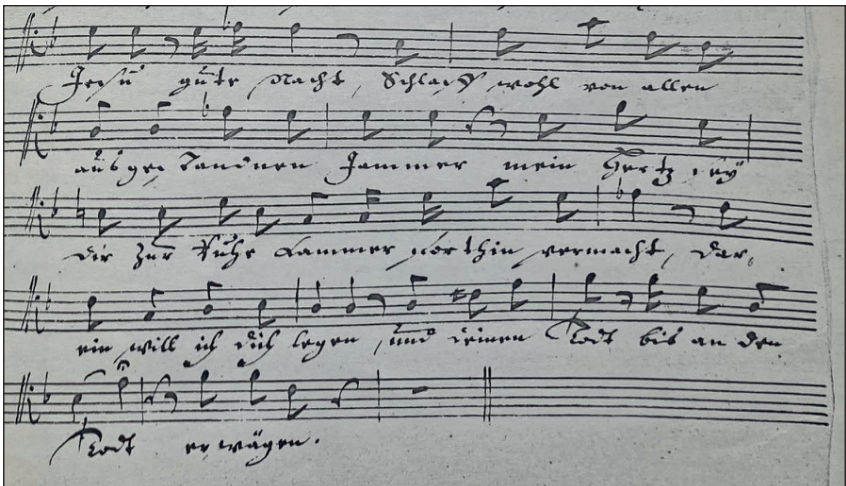 Jesu gute Nacht, Schlaff wohl von allen
ausgestandnen Jammer mein Hertz sey
dir zur Ruhe Cammer forthin vermacht, dar,
ein will ich dich legen, und deinen Todt bis an den
Todt erwägen.